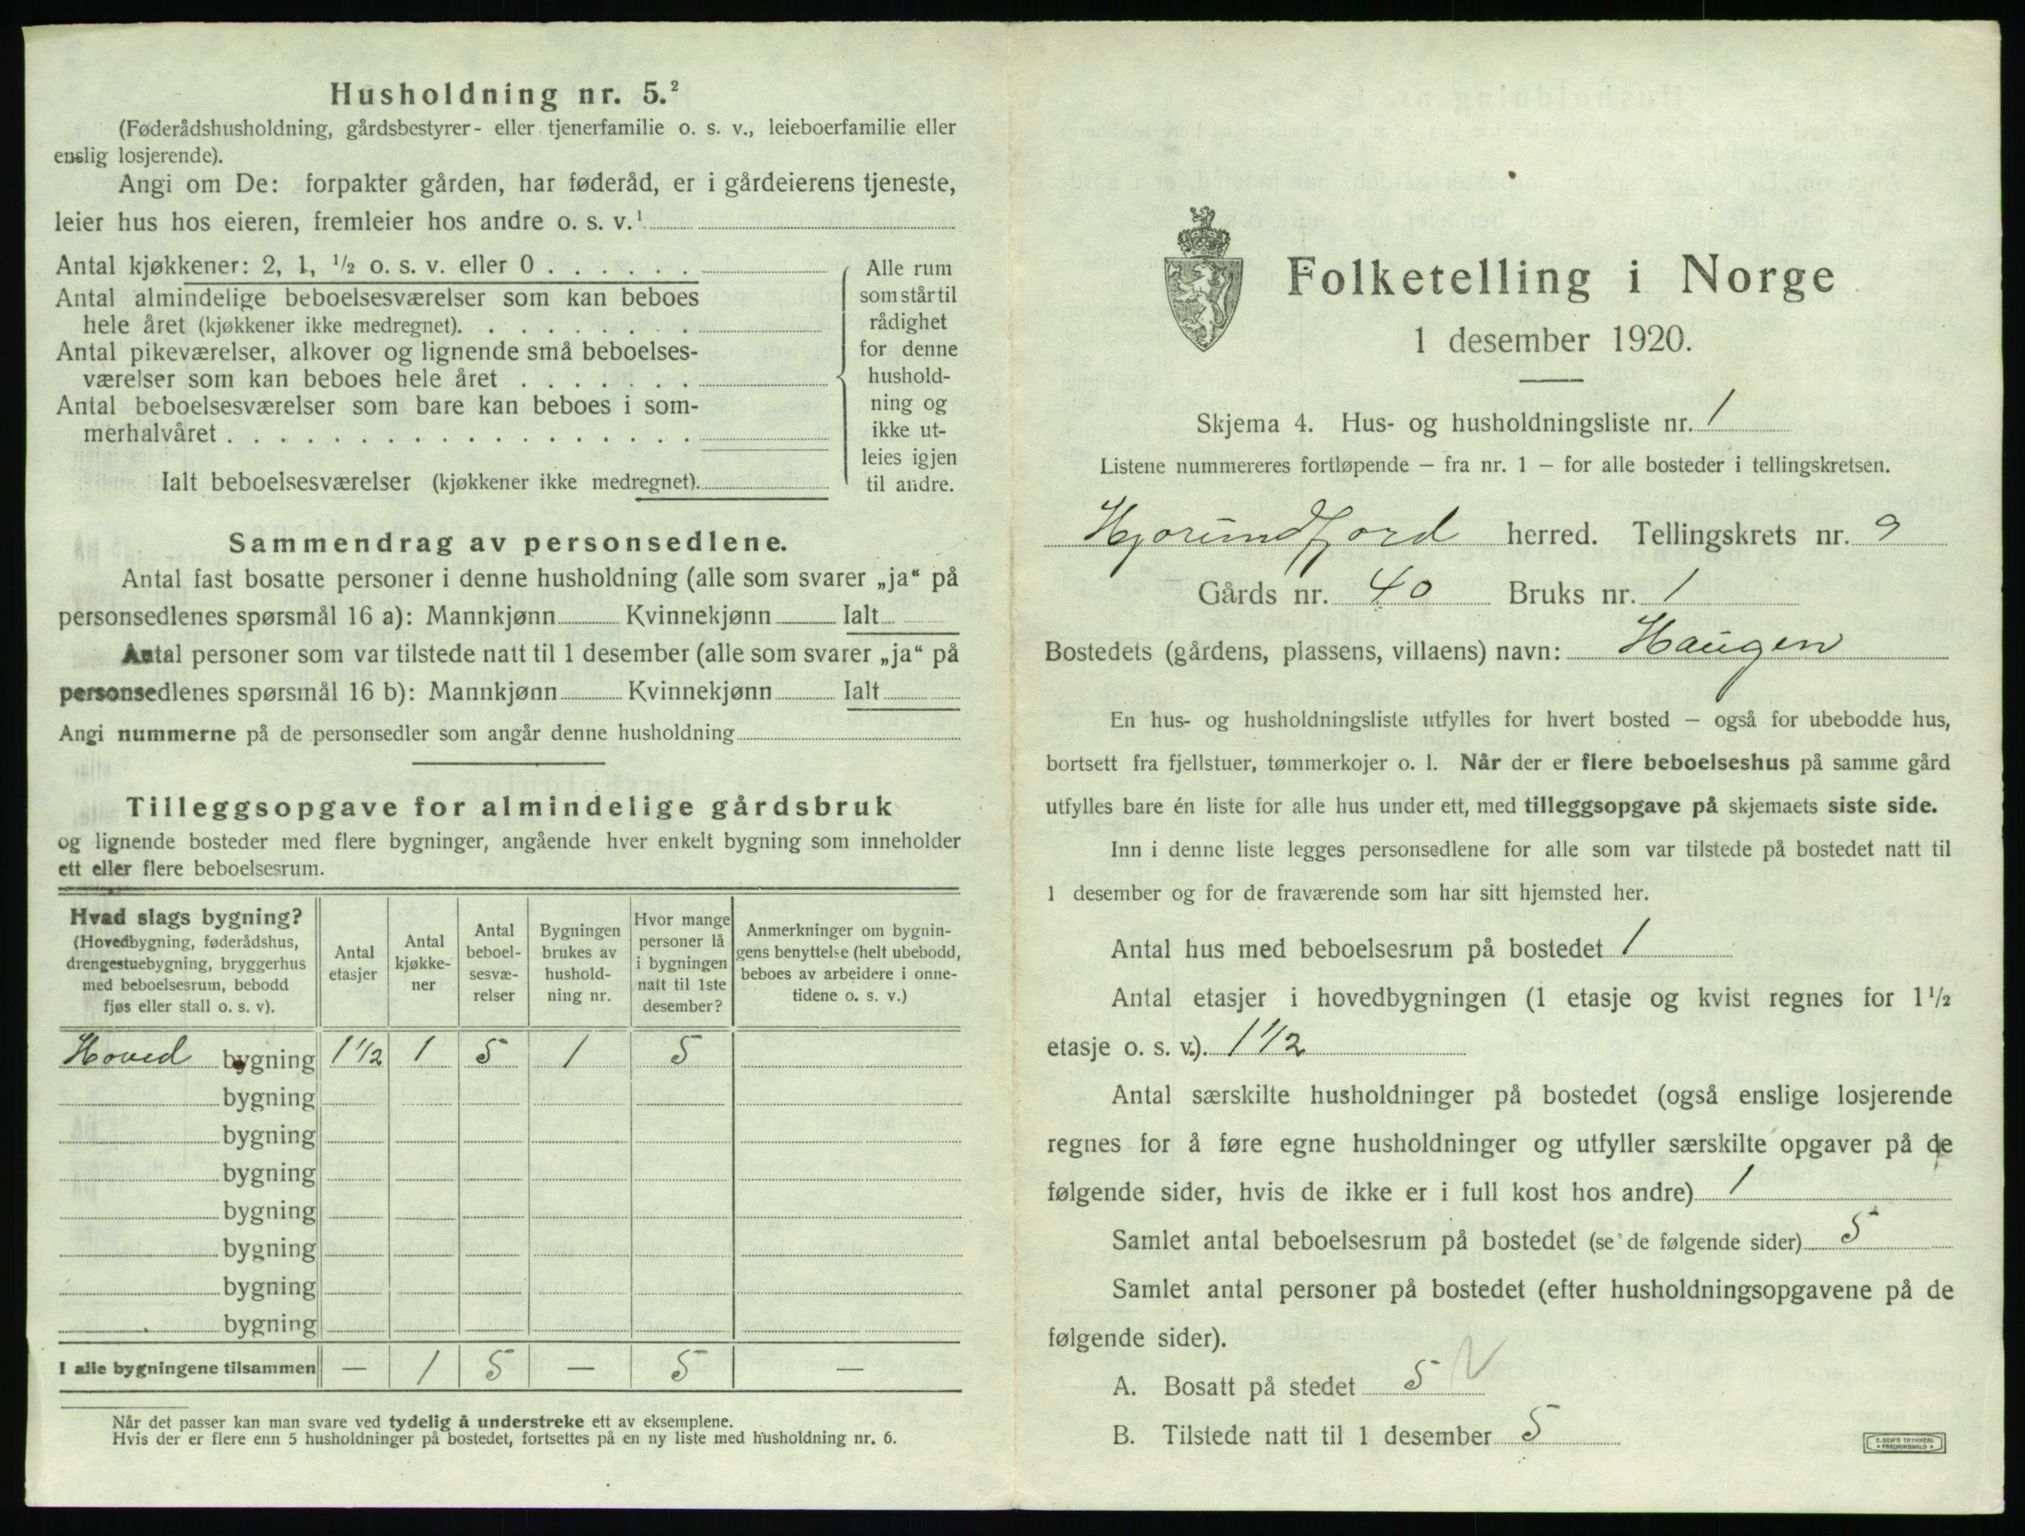 Husholdning nr. 5.²
(Føderådshusholdning, gårdsbestyrer- eller tjenerfamilie o. s. v., leieboerfamilie eller
enslig losjerende).
Angi om De: forpakter gården, har føderåd, er i gårdeierens tjeneste,
leier hus hos eieren, fremleier hos andre o. s. v.¹
Antal kjøkkener: 2, 1, ½ o. s. v. eller 0 . . . . . .
Antal almindelige beboelsesværelser som kan beboes
hele året (kjøkkener ikke medregnet). . . . . . . . .
Antal pikeværelser, alkover og lignende små beboelses-
værelser som kan beboes hele året . . . . . . .
Antal beboelsesværelser som bare kan beboes i som-
merhalvåret . . . . . . . . . . . . . . . . . .
Ialt beboelsesværelser (kjøkkener ikke medregnet).
Alle rum
som står til
rådighet
for denne
hushold-
ning og
ikke ut-
leies igjen
til andre.
Sammendrag av personsedlene.
Antal fast bosatte personer i denne husholdning (alle som svarer „ja“ på
personsedlenes spørsmål 16 a): Mannkjønn Kvinnekjønn Ialt
Antal personer som var tilstede natt til 1 desember (alle som svarer „ja“ på
personsedlenes spørsmål 16 b): Mannkjønn Kvinnekjønn Ialt
Angi nummerne på de personsedler som angår denne husholdning
Tilleggsopgave for almindelige gårdsbruk
og lignende bosteder med flere bygninger, angående hver enkelt bygning som inneholder
ett eller flere beboelsesrum.
Hvad slags bygning?
(Hovedbygning, føderådshus,
drengestuebygning, bryggerhus
med beboelsesrum, bebodd
fjøs eller stall o. s. v).
Antal
etasjer
Antal
kjøkke-
ner
Antal
beboel-
sesvæ-
relser
Bygningen
brukes av
hushold-
ning nr.
Hvor mange
personer lå
i bygningen
natt til 1ste
desember?
Anmerkninger om bygnin-
gens benyttelse (helt ubebodd,
beboes av arbeidere i onne-
tidene o. s. v.)
Hoved bygning 1½ 1 5 1 5
bygning
bygning
bygning
bygning
bygning
bygning
bygning
I alle bygningene tilsammen — 1 5 — 5 —
Når det passer kan man svare ved tydelig å understreke ett av eksemplene.
Hvis der er flere enn 5 husholdninger på bostedet, fortsettes på en ny liste med husholdning nr. 6.
Folketelling i Norge
1 desember 1920.
Skjema 4. Hus- og husholdningsliste nr. 1
Listene nummereres fortløpende – fra nr. 1 – for alle bosteder i tellingskretsen.
Hjorundfjord herred. Tellingskrets nr. 9
Gårds nr. 40 Bruks nr. 1
Bostedets (gårdens, plassens, villaens) navn: Haugen
En hus- og husholdningsliste utfylles for hvert bosted – også for ubebodde hus,
bortsett fra fjellstuer, tømmerkojer o. l. Når der er flere beboelseshus på samme gård
utfylles bare én liste for alle hus under ett, med tilleggsopgave på skjemaets siste side.
Inn i denne liste legges personsedlene for alle som var tilstede på bostedet natt til
1 desember og for de fraværende som har sitt hjemsted her.
Antal hus med beboelsesrum på bostedet 1
Antal etasjer i hovedbygningen (1 etasje og kvist regnes for 1½
etasje o. s. v.). 1½
Antal særskilte husholdninger på bostedet (også enslige losjerende
regnes for å føre egne husholdninger og utfyller særskilte opgaver på de
følgende sider, hvis de ikke er i full kost hos andre) 1
Samlet antal beboelsesrum på bostedet (se de følgende sider) 5
Samlet antal personer på bostedet (efter husholdningsopgavene på de
følgende sider).
A. Bosatt på stedet 5
B. Tilstede natt til 1 desember 5